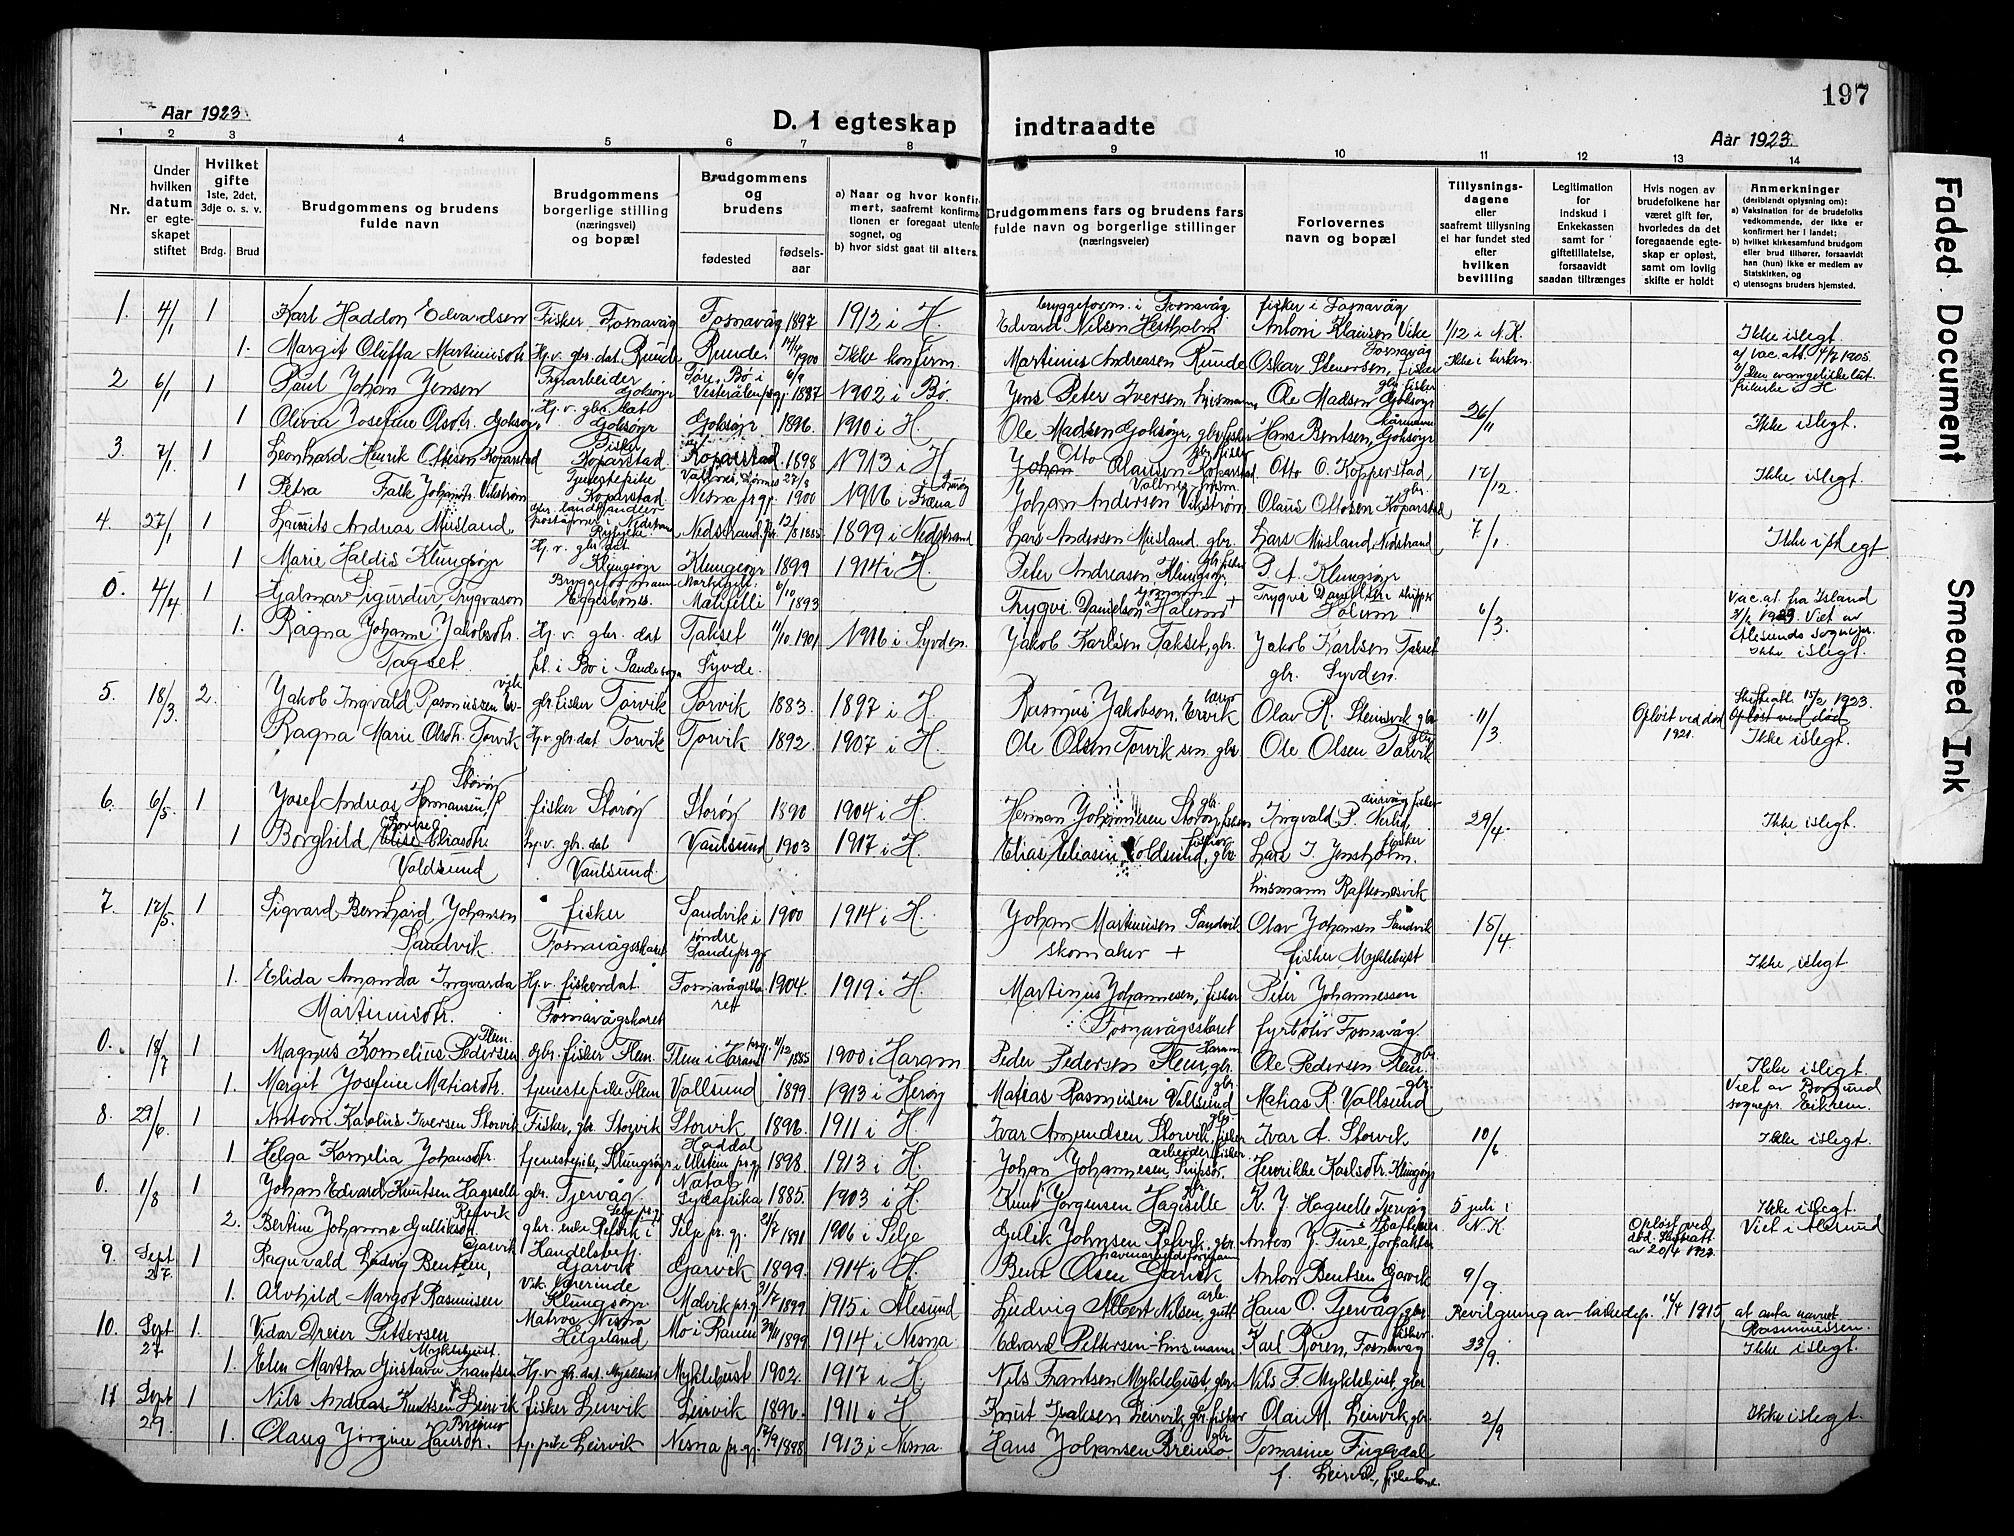 197
Aar 1923
D. I egteskap indtraadte
Aar 1923
1 2 3 4 5 6 7 8 9 10 11 12 13 14
Nr.
Under hvilken datum er egteskapet stiftet
Hvilket gifte
1ste, 2det, 3dje o. s. v.
Brdg. Brud
Brudgommens og brudens fulde navn
Brudgommens borgerlige stilling (næringsvei) og bopæl
Brudgommens og brudens
fødested
fødselsaar
a) Naar og hvor konfirmert, saafremt konfirmationen er foregaat utenfor sognet, og
b) hvor sidst gaat til alters.
Brudgommens fars og brudens fars fulde navn og borgerlige stillinger (næringsveier)
Forlovernes navn og bopæl
Tillysningsdagene eller saafremt tillysning ei har fundet sted efter hvilken bevilling
Legitimation for Indskud i Enkekassen samt for giftetillatelse, forsaavidt saadan tiltrænges
Hvis nogen av brudefolkene har været gift før, hvorledes da det foregaaende egteskap er opløst, samt om lovlig skifte er holdt
Anmerkninger
(deriblandt oplysning om):
a) Vaksination for de brudefolks vedkommende, der ikke er konfirmert her i landet;
b) hvilket kirkesamfund brudgom eller brud tilhører, forsaavidt han (hun) ikke er medlem av Statskirken, og
c) utensogns bruders hjemsted.
1. 4/1 1 Karl Haddon Edvardsen Fisker Fosnavåg Fosnavåg 1897 1912 i H. bryggeform. i Fosnavåg Edvard Nilsen Hestholm fisker i Fosnavåg Antoni Klausen Vike 1/12 i N.K. Ikke i slegt
1. Margit Oluffa Martinusdtr. Hj. v. gbr. dat. Runde Runde 1900 Ikke konfirm. Martinus Andreasen Runde Oskar Stenersen, fisker Fosnavåg
2 6/1 1 Paul Johan Jensen Fyrarbeider Goksøyr Bø i Vesterålen prgj. 1887 1902 i Bø. Jens Peter Iversen husmann Ole Madsen Goksøyr gbr. fisker 26/11
1 Olivia Josefine Olsdtr. Goksøyr Hj. v. gbr. dat Goksøyr Goksøyr 1896 1910 i H. Ole Madsen Goksøyr, gbr. fisker Hans Bentsen, Goksøyr Ikke i slegt.
3. 7/1 1 Leonhard Henrik Ottesen Koparstad Fisker Koparstad Koparstad 1898 1913 i H. Otto Olausen Koparstad gbr. fisker Otto O. Kopperstad, 17/12. Ikke i slegt.
1 Petra Falk Johansdtr. Vikstrøm Tjenestepike Koparstad Nesna prgj. 1900 1916 i Fræna Johan Andersen Vikstrøm Olaus Ottosen Koparstad gbr.
4. 27/1 1 Laurits Andreas Musland Nedstrand 1885 1899 i Nedstrand Lars Andersen Musland gbr. Lars Musland, Nedstrand 7/1 Ikke i slegt
1 Marie Haldis Klungsøyr Hj. v. gbr. dat Klungsøyr Klungsøyr 1899 1914 i H. Peter Andreasen, Klungsøyr, gbr. fisker P. A. Klungsøyr
0. 4/4 1 Hjalmar Sigurdur Trygvason Eggesbønes. 6/10 1893 Trygvi Danielson 6/3 Vac. at. fra Island
1. Ragna Johanne Jakobsdtr. Tagset. Hj. v. gbr. dat pt. i Bø i Sande sogn Takset Syvde. 11/10 1901 1916 i Syvden. Jakob Karlsen Takset, gbr. Jakob Karlsen Takset gbr. Syvden. Viet av Ålesunds sognepr. Ikke i slegt.
5. 18/3 2. Jakob Ingvald Rasmussen Ervik gbr. fisker Torvik Torvik 1883. 1897 i H. Rasmus Jakobson Ervik Olav R. Steinsvik gbr. 11/3 Opløst ved død 1921. Skifteatt. 15/2 1923. Opløst ved død
Ragna Marie Olsdtr. Torvik Hj. v. gbr. dat Torvik Torvik 1892. 1907 i H. Ole Olsen Torvik sen. gbr Ole Olsen Torvik Ikke i slegt.
6. 6/5 1 Josef Andreas Hermansen, Storøy fisker Storøy Storøy 1890 1904 i H. Herman Johannesen Storøy, gbr. fisker Ingvald P. 29/4. Ikke i slegt.
1 Borghild Eliasdtr. Voldsund hj. v. gbr. dat Vaulsund Vaulsund 1903 1917 i H. Elias Eliasen Voldsund, gbr. Lars J. Jensholm. fisker husmann Raftenesvik
7. 12/5 1 Sigvard Bernhard Johansen Sandvik. fisker Fosnavågsskaret Sandvik i søndre Sande prgj 1900 1914 i H. Johan Martinusen Sandvik skomaker + Olav Johansen Sandvik fisker Myklebust 15/4. Ikke i slegt
1. Elida Amanda Ingvarda Martinusdtr. Hj. v. fiskerdat. Fosnavågskaret Fosnavågskaret 1904. 1919 i H. Martinus Johannesen, fisker Fosnavågskaret Peter Johannessen fyrbøter Fosnavåg
0. 18/7 1 Magnus Kornelius Pedersen Flem gbr. fisker Flem. Flem i Haram prgj. 11/12 1885 1900 i Haram Peder Pedersen Flem, gbr. Haram Ole Pedersen Flem. gbr. Ikke i slegt.
1. Margit Josefine Matiasdtr. tjenestepike Flem Vallsund 1899 1913 i Herøy Matias Rasmusen Vallsund gbr. Matias R Vallsund gbr. Viet av Borgund sognepr. Eikrem.
8. 29/6 1 Antoni Karolus Iversen Storvik Fisker, gbr. Storvik Storvik 1896 1911 i H. Ivar Amundsen Storvik, gbr. fisker Ivar A. Storvik 10/6 Ikke i slegt.
1 Helga Kornelia Johansdtr. tjenestepike, Klungsøyr Haddal i Ulstein prgj 1898. 1913 i H. Johan Johannesen, arbeider Henrikke Karlsdtr. Klungsøyr
0. 1/8 1 Johan Edvard Knutsen Hagselle gbr. Tjervåg. Natal, Sydafrika 1885. 1903 i H. Knut Jørgensen Hagselle K. J. Hagselle Tjervåg 5 juli i N. K Ikke i slegt.
2. Bertine Johanne Gulliksdtr. Refvik gbr. enke Refvik i Selje prgj. Selje pr. gj. 21/7 1891 1906 i Selje Gulik Johnsen Refvik gbr. Anton J. Ture, forpakter Opløst ved død. Skifteatt. av 20/4 1922. Viet i Ålesund
9. Sept 27. 1 Ragnvald Ludvig Bentsen, Gjærvik Handelsbetj. Gjærvik Garvik 1899. 1914 i H. Bent Olsen Garvik Anton Bentsen Garvik 9/9.
1. Alvhild Margot Rasmusen Klungsøyr Malvik prgj 31/7 1899 1915 i Ålesund Ludvig Albert Nilsen, Hans O. Tjervåg, gbr. Bevilgning av 12/4 1915, at anta navnet Rasmussen.
10. Sept 27 1. Vidar Dreier Pettersen Matros Nesna Helgeland Mo i Ranen 30/11 1899 1914 i Nesna Edvard Pettersen husmann Karl Rønen, Fosnavåg 23/9. Ikke i slegt.
1. Elen Martha Gustava Frantsen Myklebust. Hj. v. gbr. dat. Myklebust Myklebust 1902 1917 i H Nils Frantsen Myklebust, gbr. Nils F. Myklebust, gbr
11 Sept 29. 1 Nils Andreas Knutsen Leirvik fisker Leirvik Leirvik 1896. 1911 i H Knut Isaksen Leirvik gbr. fisker Olai M. Leirvik gbr. 2/9 Ikke i slegt.
1. Olaug Jørgine Hansdtr. Breimo tj. pike Leirvik Nesna pr. gj. 17/9 1898 1913 i Nesna. Hans Johansen Breimo. gbr Tomasine Fugledal f. Leirvik, fiskerkone.
Faded Document
Smeared Ink